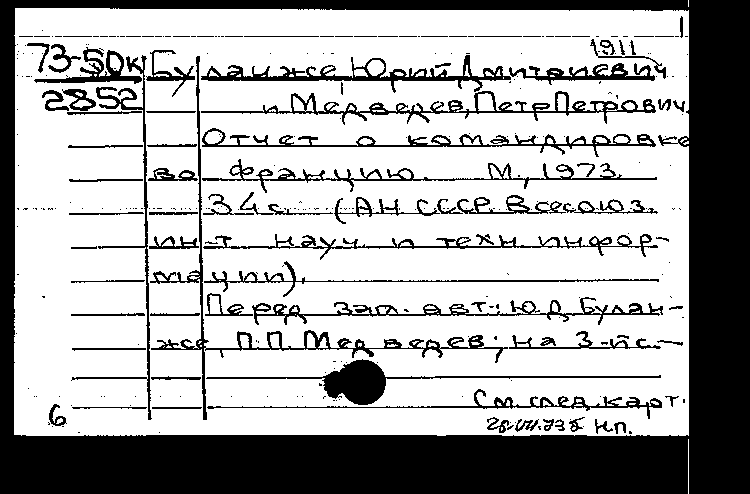 1911
73-50к Буланже, Юрий Дмитриевич
2852 и Медведев, Петр Петрович.
Отчет о командировке
во Францию. М., 1973.
34 с. (АН СССР. Всесоюз.
ин-т науч. и техн. инфор-
мации).
Перед загл. авт.: Ю.Д. Булан-
же, П.П. Медведев; на 3-й с.—
См. след. карт.
6 Н.П.